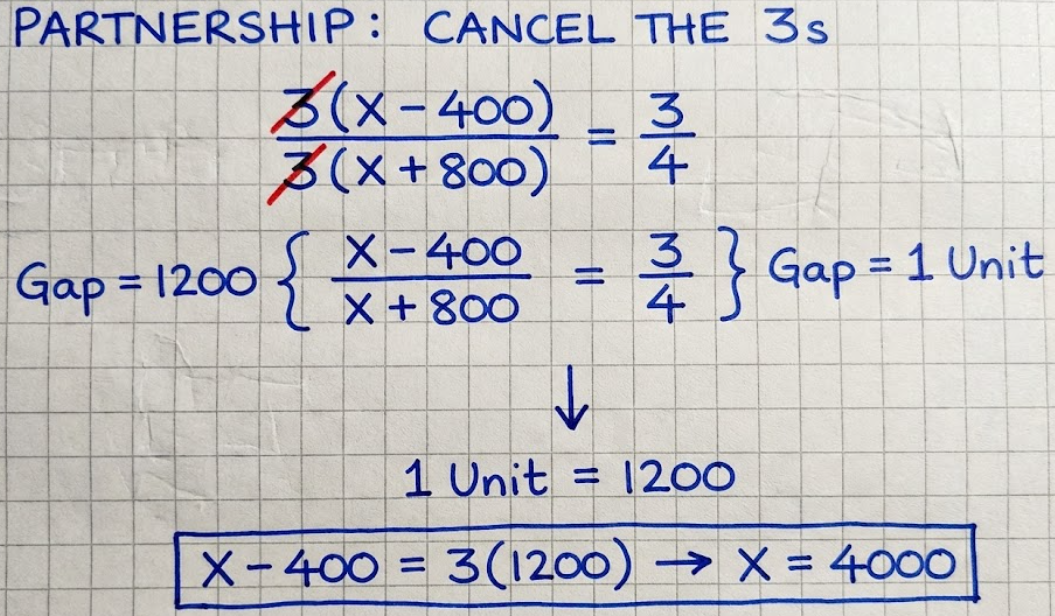 PARTNERSHIP: CANCEL THE 3s
3(X - 400)
3(X + 800)
= 3/4
Gap = 1200 { X - 400 / X + 800 = 3/4 } Gap = 1 Unit
↓
1 Unit = 1200
X - 400 = 3(1200) → X = 4000